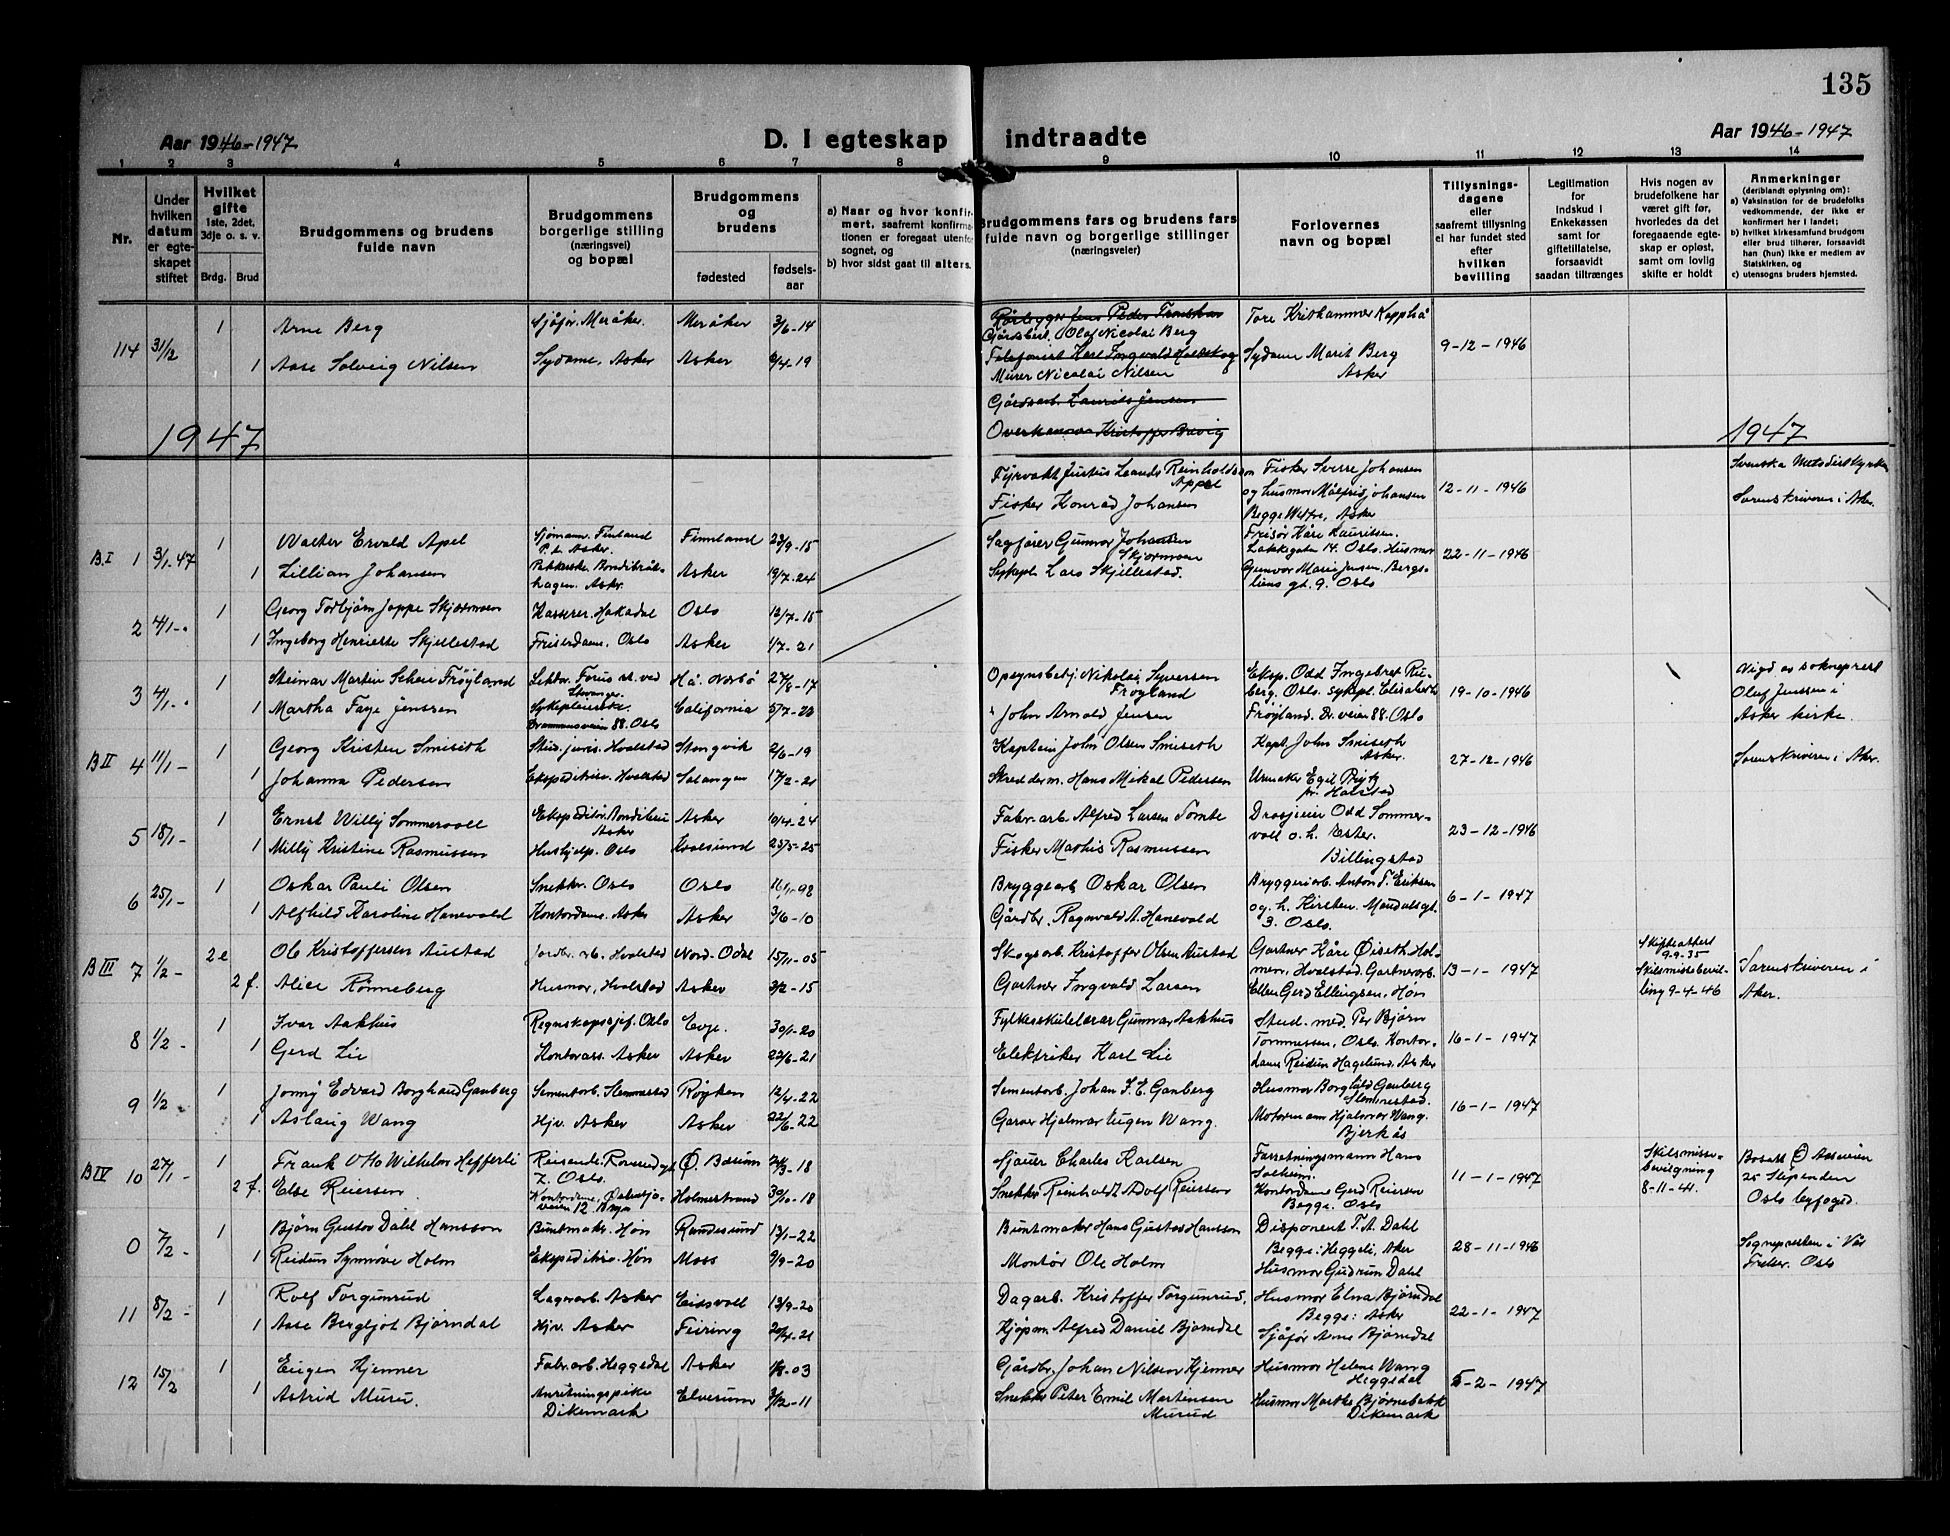 135
Aar 1946-1947
D. I egteskap indtraadte
Aar 1946-1947
1 2 3 4 5 6 7 8 9 10 11 12 13 14
Nr.
Under hvilken datum er egteskapet stiftet
Hvilket gifte
1ste, 2det, 3dje o. s. v.
Brdg. Brud
Brudgommens og brudens fulde navn
Brudgommens borgerlige stilling (næringsvei) og bopæl
Brudgommens og brudens
fødested
fødselsaar
a) Naar og hvor konfirmert, saafremt konfirmationen er foregaat utenfor sognet, og
b) hvor sidst gaat til alters.
Brudgommens fars og brudens fars fulde navn og borgerlige stillinger (næringsveier)
Forlovernes navn og bopæl
Tillysningsdagene eller saafremt tillysning ei har fundet sted efter hvilken bevilling
Legitimation for indskud i Enkekassen samt for giftetillatelse, forsaavidt saadan tiltrænges
Hvis nogen av brudefolkene har været gift før, hvorledes da det foregaaende egteskap er opløst, samt om lovlig skifte er holdt
Anmerkninger
(deriblandt oplysning om):
a) Vaksination for de brudefolks vedkommende, der ikke er konfirmert her i landet;
b) hvilket kirkesamfund brudgom eller brud tilhører, forsaavidt han (hun) ikke er medlem av Statskirken, og
c) utensogns bruders hjemsted.
114 31/12 1 Arne Berg Sjåfør. Meråker. Meråker 3/6-14 Gårdsbest. Olaf Nicolai Berg Tore Kristhammer Kapphå 9-12-1946
1 Aase Solveig Nilsen Sydame, Asker Asker 4-19 Murer Nicolai Nilsen Sydame Marit Berg Asker
Gårdsarb. Laurits Jensen
1947 1947
Fyrvakt Justus Leands Reinholdson Appel Fisker Sverre Johansen og husmor Målfrid Johansen Begge Asker 12-11-1946 Svenska Metodistkyrkan
Fisker Konrad Johansen Sorenskriveren i Aker
B.I 1 3/1-47 1 Walter Ervald Apel Sjømann. Finland P.t. Asker. Finnland 23/9-15
1 Lillian Johansen Asker. Asker 19/7-24
Sagfører Gunnar Johansen Skjørmoen Frisør Kåre Lauritsen. Oslo. Husmor 22-11-1946
Lars Skjellestad. Gunvor Marie Jensen. Bergsliens gt. 9. Oslo
2 4/1-. 1 Georg Torbjørn Jappe Skjørmoen Kasserer. Hakadal Oslo 12/7-15
1 Ingeborg Henriette Skjellestad Friserdame. Oslo Asker 1/7-21
3 4/1-. 1 Steinar Martin Scheie Frøyland Lektor. Forus st. ved Stavanger Hå. Nærbø 27/6-17 Opsynsbetj. Nikolai Syversen Frøyland Eksp. Odd Ingebret Rieberg. Oslo. sykepl. Elisabeth 19-10-1946 Vigd av sokneprest
1 Martha Faye Jenssen Sykepleierske. Drammensveien 88. Oslo California 5/7-20 John Arnold Jensen Frøyland. Dr. veien 88. Oslo Olaf Jenssen i Asker kirke.
B II 4 11/1- 1 Georg Kristen Smiseth Stud. juris. Hvalstad Stangvik 2/6-19 Kaptein John Olsen Smiseth Kapt. John Smiseth Asker. 27-12-1946 Sorenskriveren i Aker.
1 Johanna Pedersen Ekspeditrise. Hvalstad Salangen 17/2-21 Skredderm. Hans Mikal Pedersen Urmaker Egil
5 18/1- 1 Ernst Willy Sommervoll Ekspeditør. Bondilia Asker Asker 10/4-24 Fabr.arb. Alfred Larsen Tomte Drosjeeier Odd Sommervoll o.h. Ester. 23-12-1946
1 Milly Kristine Rasmussen Hushjelp. Oslo Kvalsund 25/5-25 Fisker Mathis Rasmussen Billingstad
6 25/1- 1 Oskar Pauli Olsen Snekker. Oslo Oslo 16/1-98 Bryggearb Oskar Olsen Bryggeriarb. Anton T. Eriksen 6-1-1947
1 Alfhild Karoline Hanevold Kontordame. Asker Asker 3/6-10 Gårdbr. Ragnvald A. Hanevold og h. Kirsten. Mandalsgt. 3. Oslo.
B III 7 1/2- 2e Ole Kristoffersen Austad Jordbr. arb. Hvalstad Nord-Odal 15/11-05 Skogsarb. Kristoffer Olsen Austad Gartner Kåre Øiseth Holmen. Hvalstad. Gartnerarb. 13-1-1947 Skifteattest 9-9-35 Sorenskriveren i
2 f. Alice Rønneberg Husmor, Hvalstad Asker 3/2-15 Gartner Ingvald Larsen Ellen Gerd Ellingsen. Høn Skilsmissebevilling 9-4-46 Aker.
8 1/2- 1 Ivar Aakhus Regnskapssjef. Oslo Evje. 30/1-20 Fylkesskulelærar Gunnar Aakhus Stud. med. Per Bjørn 16-1-1947
1 Gerd Lie Kontorass. Asker Asker 22/6-21 Elektriker Karl Lie Tommessen, Oslo. Kontordame Reidun Hagelund, Asker
9 1/2 1 Jonny Edvard Borghard Ganberg Sementarb. Slemmestad Røyken 12/4-22 Sementarb. Johan F. E. Ganberg Husmor Borghild Ganberg Slemmestad. 16-1-1947
1 Aslaug Wang Hjv. Asker Asker 22/6-22 Garver Hjalmar Eugen Wang. Motormann Hjalmar Wang. Bjerkås
B IV 10 27/1- 1 Frank Otto Wilhelm Hefferli Reisende. 7. Oslo. Ø. Bærum 3-18 Sjauer Charles Karlsen Forretningsmann Hans Solheim. 11-1-1947 Skilsmissebevilgning 8-11-41. Bosatt
2 f. Else Reiersen Kontordame, 12 Holmestrand 30/10-18 Snekker Reinholdt Adolf Reiersen Kontordame Gerd Reiersen Begge. Oslo Oslo byfoged.
0 7/2- 1 Bjørn Gustav Dahl Hansson Buntmaker. Høn Randesund 13/1-22 Buntmaker Hans Gustav Hansen Disponent T. A. Dahl 28-11-1946 Sogneprester i Vår
1 Reidun Synnøve Holm Ekspeditrise. Høn Moss 9/9-20 Montør Ole Holm Begge: Heggeli, Asker Husmor Gudrun Dahl Frelser. Oslo
11 8/2- 1 Rolf Torgunrud Lagerarb. Asker Eidsvoll 13/9-20 Dagarb. Kristoffer Torgunrud, Husmor Elna Bjørndal Begge: Asker 22-1-1947
1 Aase Bergljot Bjørndal Hjv. Asker Feiring 20/4-21 Kjøpm. Alfred Daniel Bjørndal Sjåfør Arne Bjørndal
12 15/2 1 Eugen Kjenner Fabr.arb. Heggedal Asker 1/8-03 Gårdbr. Johan Nilsen Kjenner Husmor Helene Wang Heggedal 5-2-1947
1 Astrid Muru. Anretningspike Dikemark Elverum 3/12-11 Snekker Peter Emil Martinsen Murud Husmor Marthe Bjørnebakk Dikemark